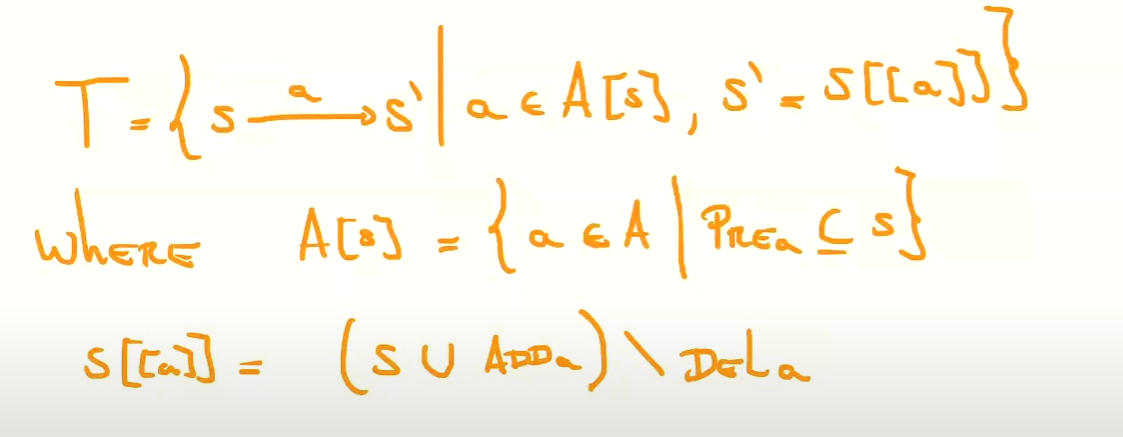 T = { s —a→ s' | a ∈ A[s], s' = s[[a]] }
WHERE A[s] = { a ∈ A | PREₐ ⊆ s }
s[[a]] = (s ∪ ADDₐ) \ DELₐ